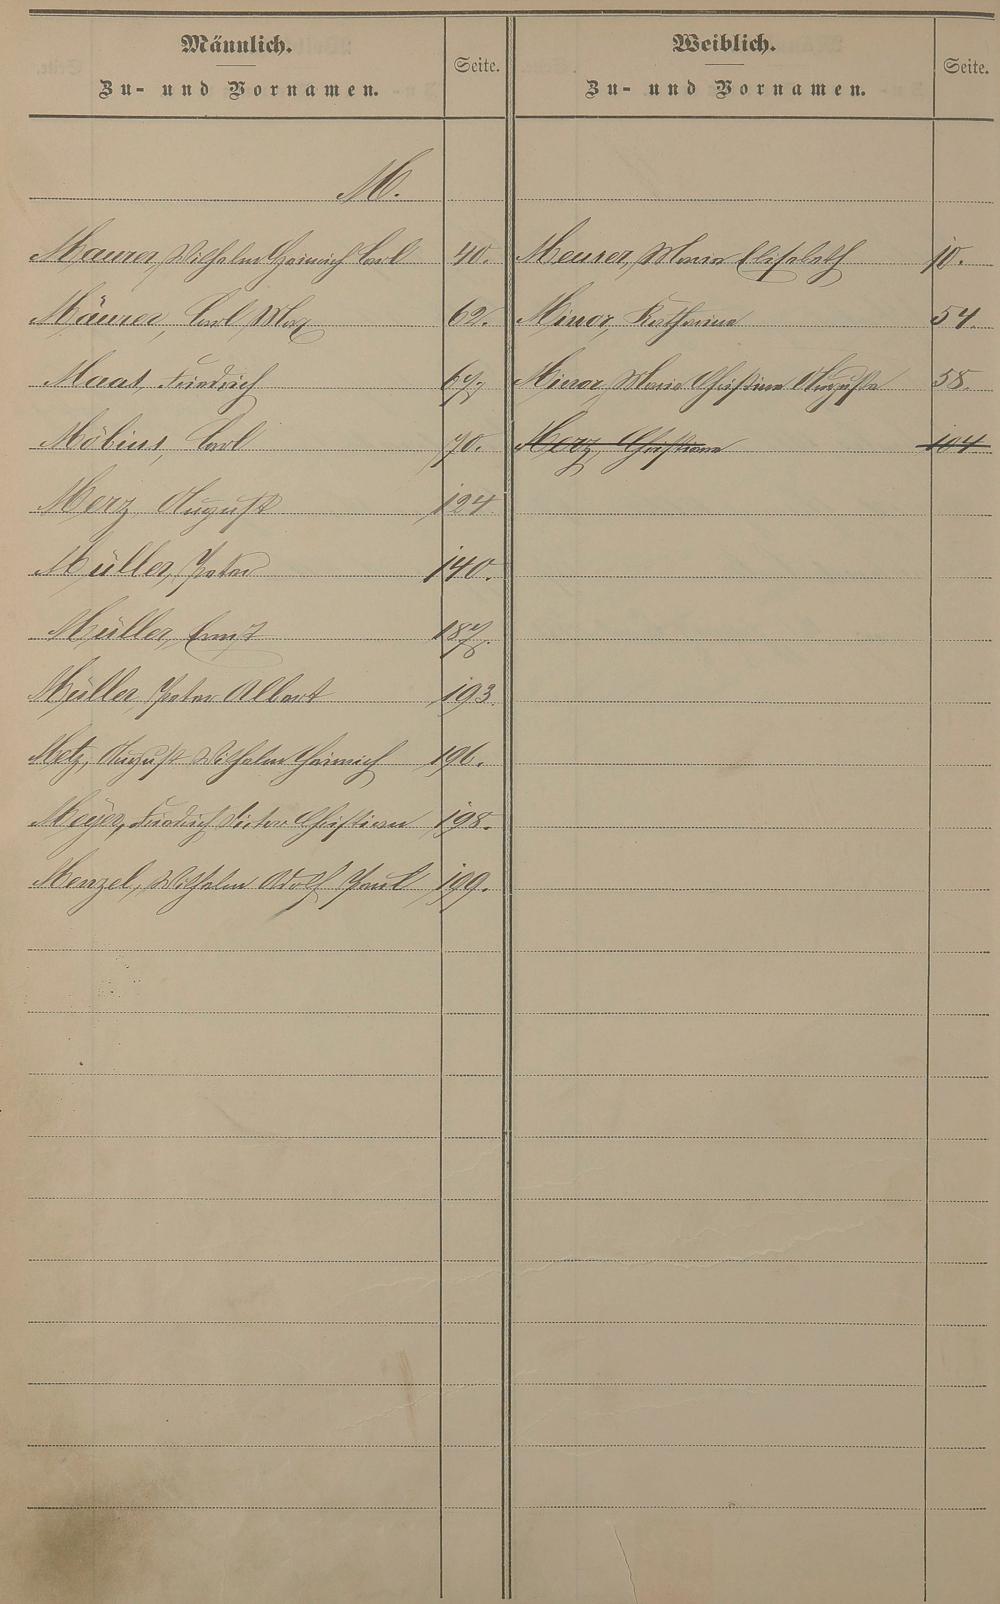 Männlich.
Zu- und Vornamen.
Seite.
Weiblich.
Zu- und Vornamen.
Seite.
M.
Maurer, Wilhelm Heinrich Carl 40.
Mäurer, Carl Max 62.
Maat, Friedrich 67.
Möbius, Carl 70.
Merz August 124
Müller, Peter 140.
Müller, Ernst 187.
Müller, Peter Albert 193.
Metz, August Wilhelm Heinrich 196.
Meyer, Friedrich Victor Christian 198.
Menzel, Wilhelm Adolf Paul 199.
Meurer, Maria Elisabeth 10.
Minor, Katharina 54.
Minor, Maria Christina Auguste 58.
Merz, Christiane 104